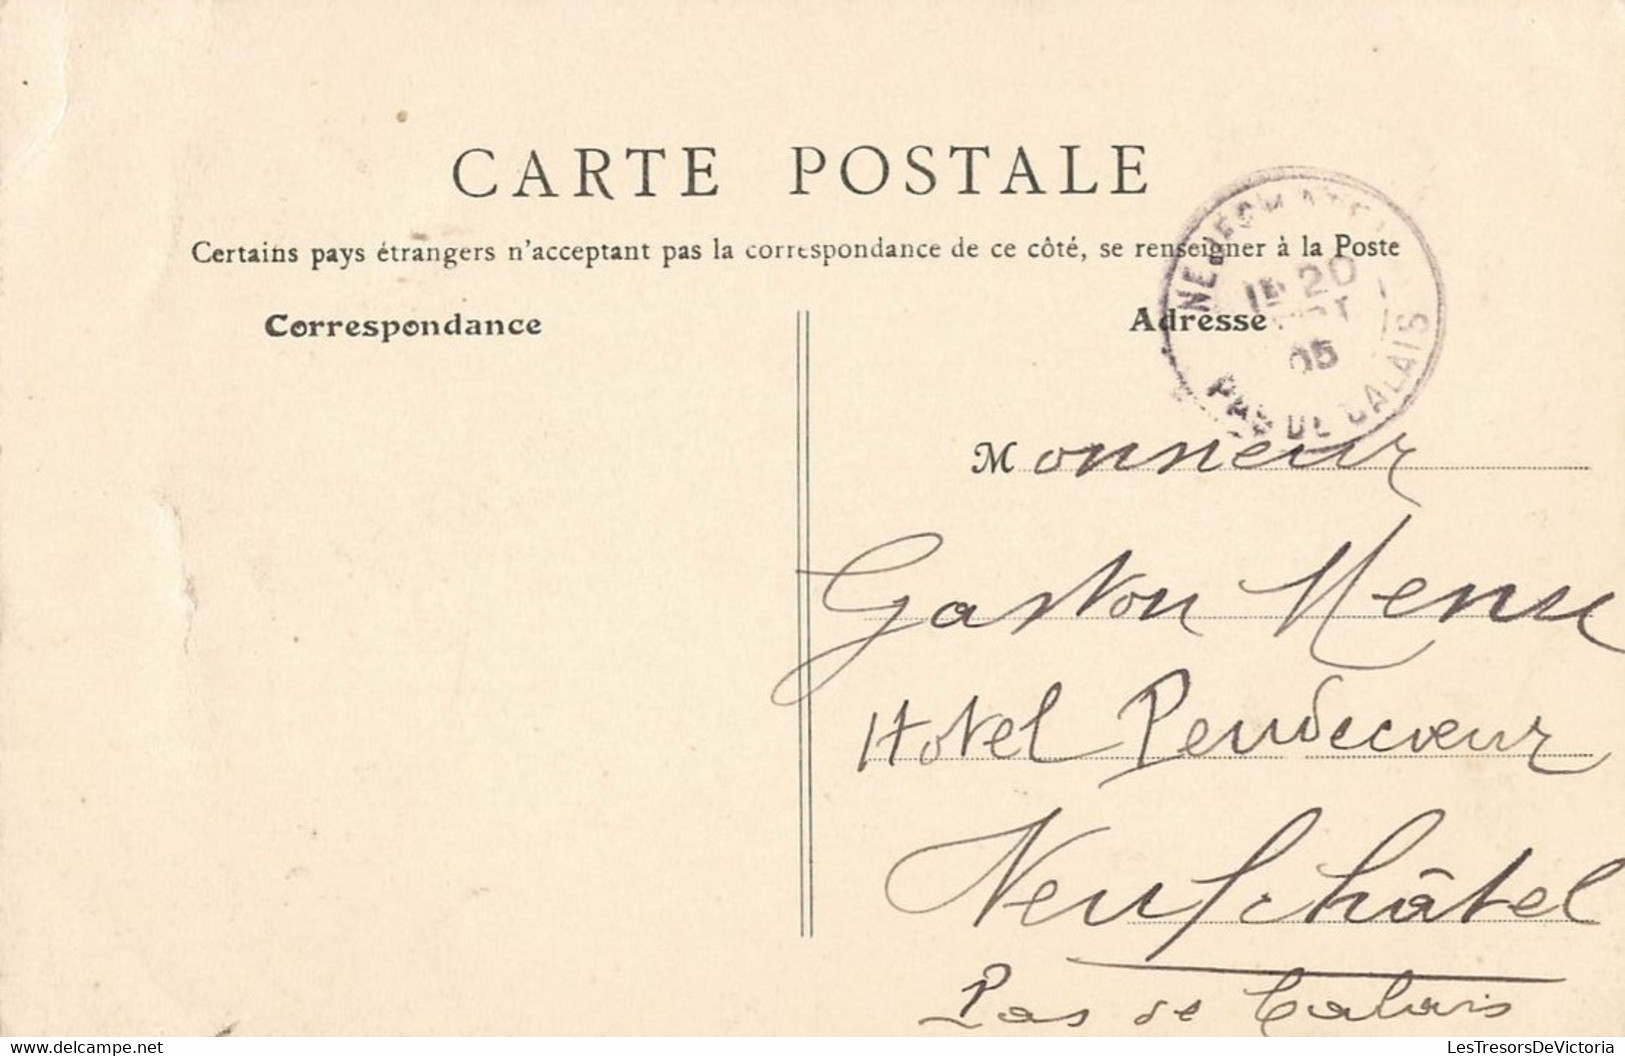 CARTE POSTALE
Certains pays étrangers n'acceptant pas la correspondance de ce côté, se renseigner à la Poste
Correspondance
Adresse
20
05
PAS DE CALAIS
Monsieur
Gaston Menu
Hotel Pendecœur
Neufchâtel
Pas de Calais
www.delcampe.net
LesTresorsDeVictoria